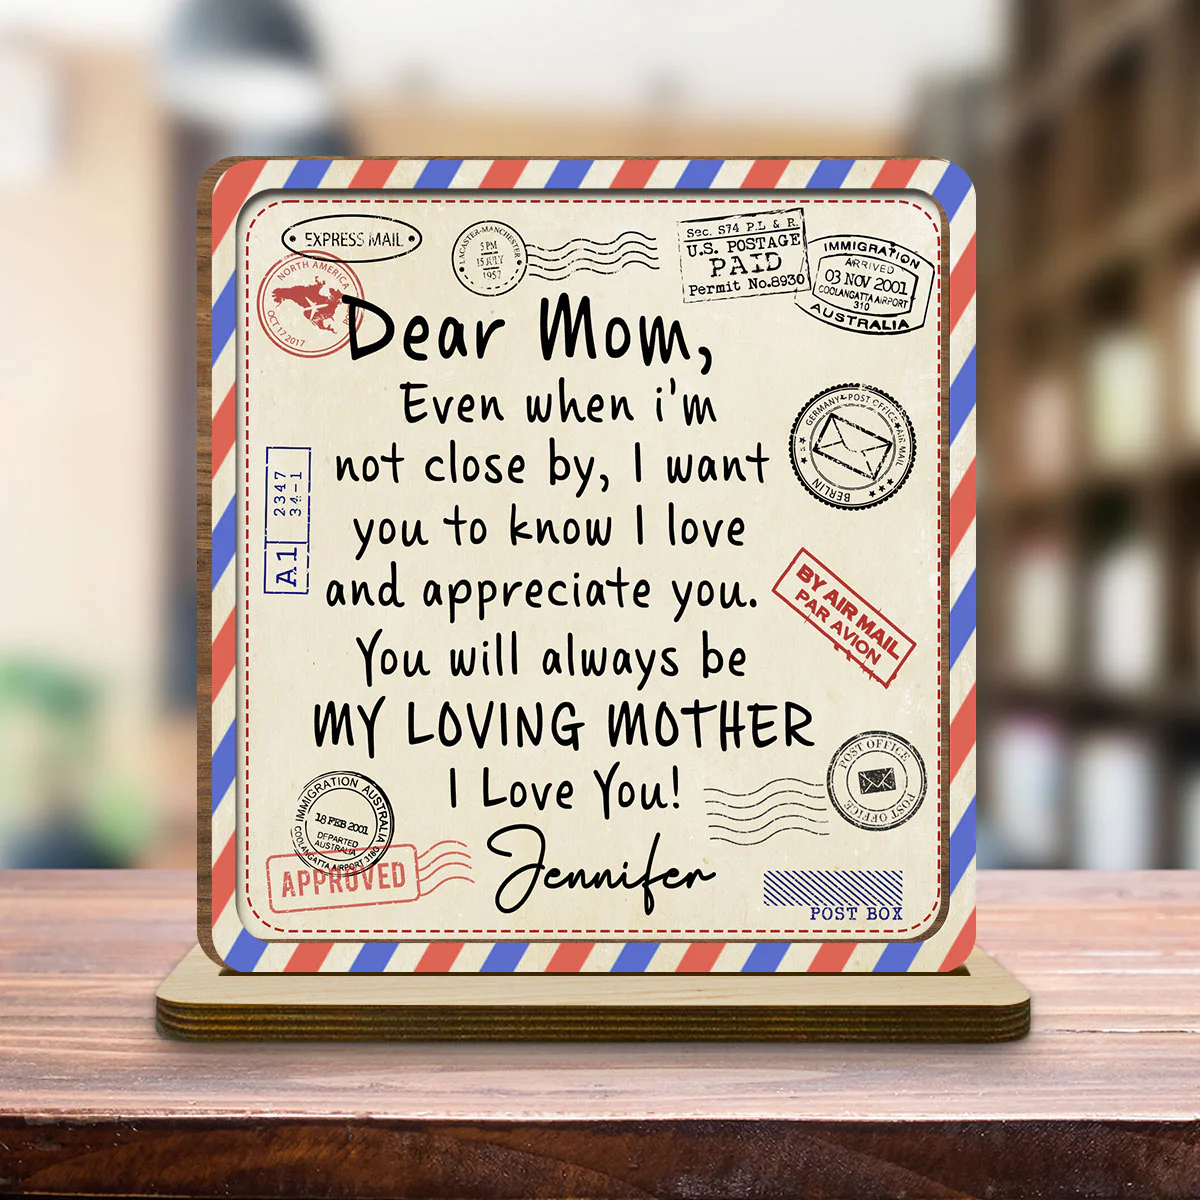 EXPRESS MAIL
LACASTER-MANCHESTER
5 PM
15 JULY
1957
Sec. S74 P.L & R.
U.S. POSTAGE
PAID
Permit No.8930
IMMIGRATION
ARRIVED
03 NOV 2001
COOLANGATTA AIRPORT
310
AUSTRALIA
NORTH AMERICA
OCT 17 2017
Dear Mom,
Even when i'm
not close by, I want
you to know I love
and appreciate you.
You will always be
MY LOVING MOTHER
I Love You!
Jennifer
GERMANY POST OFFICE AIR MAIL
BERLIN
A1
2347
34-1
BY AIR MAIL
PAR AVION
POST OFFICE
POST OFFICE
IMMIGRATION AUSTRALIA
18 FEB 2001
DEPARTED
AUSTRALIA
COOLANGATTA AIRPORT 310
APPROVED
POST BOX